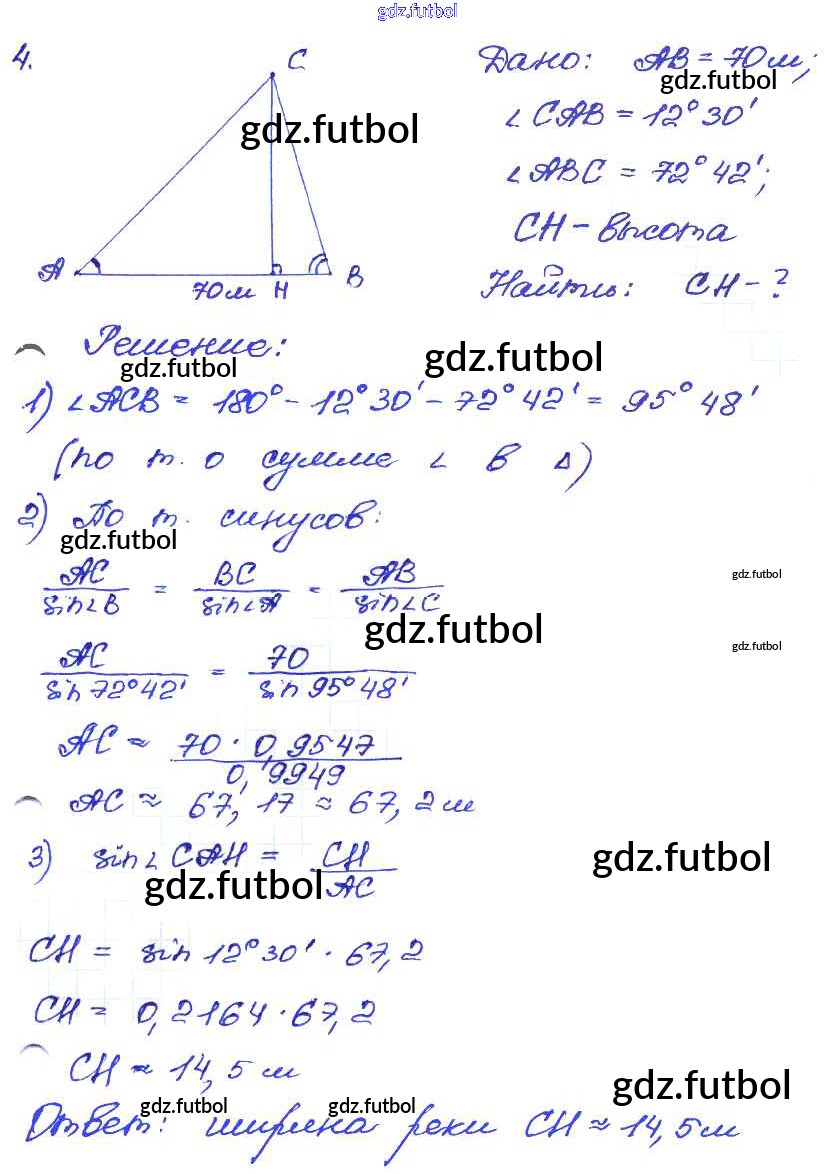 gdz.futbol
4.
C
Дано: AB = 70 м;
gdz.futbol
gdz.futbol
∠CAB = 12°30'
∠ABC = 72°42';
CH - высота
A
70 м H
B
Найти: CH - ?
Решение:
gdz.futbol
gdz.futbol
1) ∠ACB = 180° - 12°30' - 72°42' = 95°48'
(по т. о сумме ∠ в Δ)
2) По т. синусов:
gdz.futbol
AC/sin∠B = BC/sin∠A = AB/sin∠C
gdz.futbol
gdz.futbol
gdz.futbol
AC/sin 72°42' = 70/sin 95°48'
AC ≈ 70 · 0,9547/0,9949
AC ≈ 67,17 ≈ 67,2 м
3) sin∠CAH = CH/AC
gdz.futbol
gdz.futbol
CH = sin 12°30' · 67,2
CH = 0,2164 · 67,2
CH ≈ 14,5 м
gdz.futbol
gdz.futbol
gdz.futbol
Ответ: ширина реки CH ≈ 14,5 м